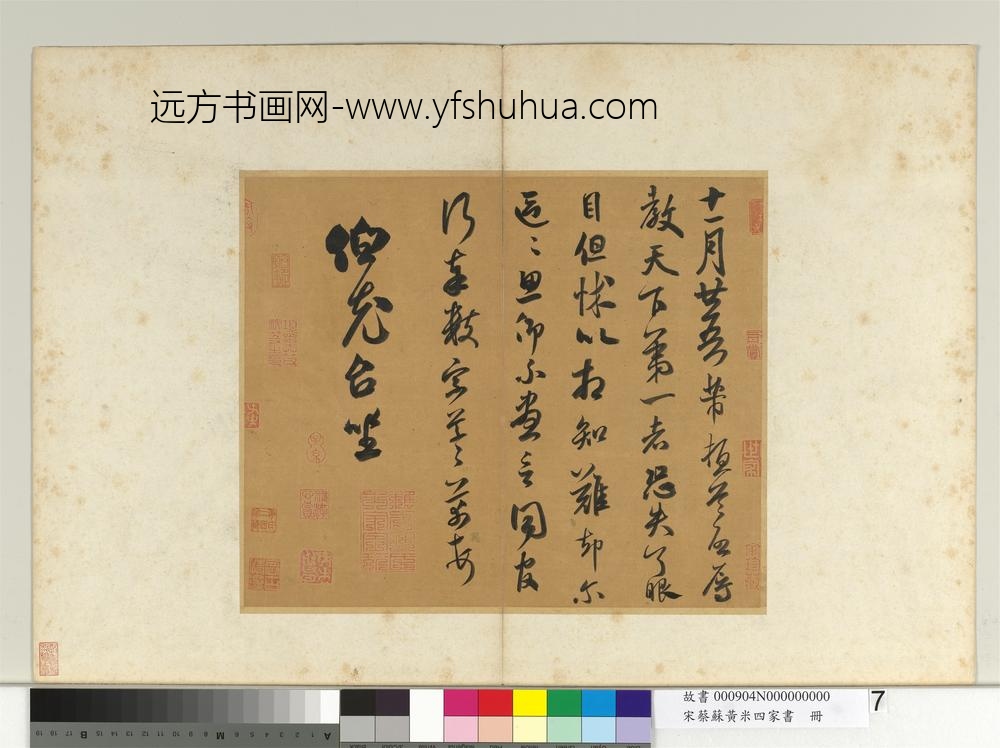 远方书画网-www.yfshuhua.com
十一月廿五日芾頓首啓辱
教天下第一者恐失了眼
目但怵以相知難却尔
區〻思仰不盡言同官
行奉數字草〻芾頓首
伯充台坐
故書 000904N000000000
宋蔡蘇黃米四家書 冊
7